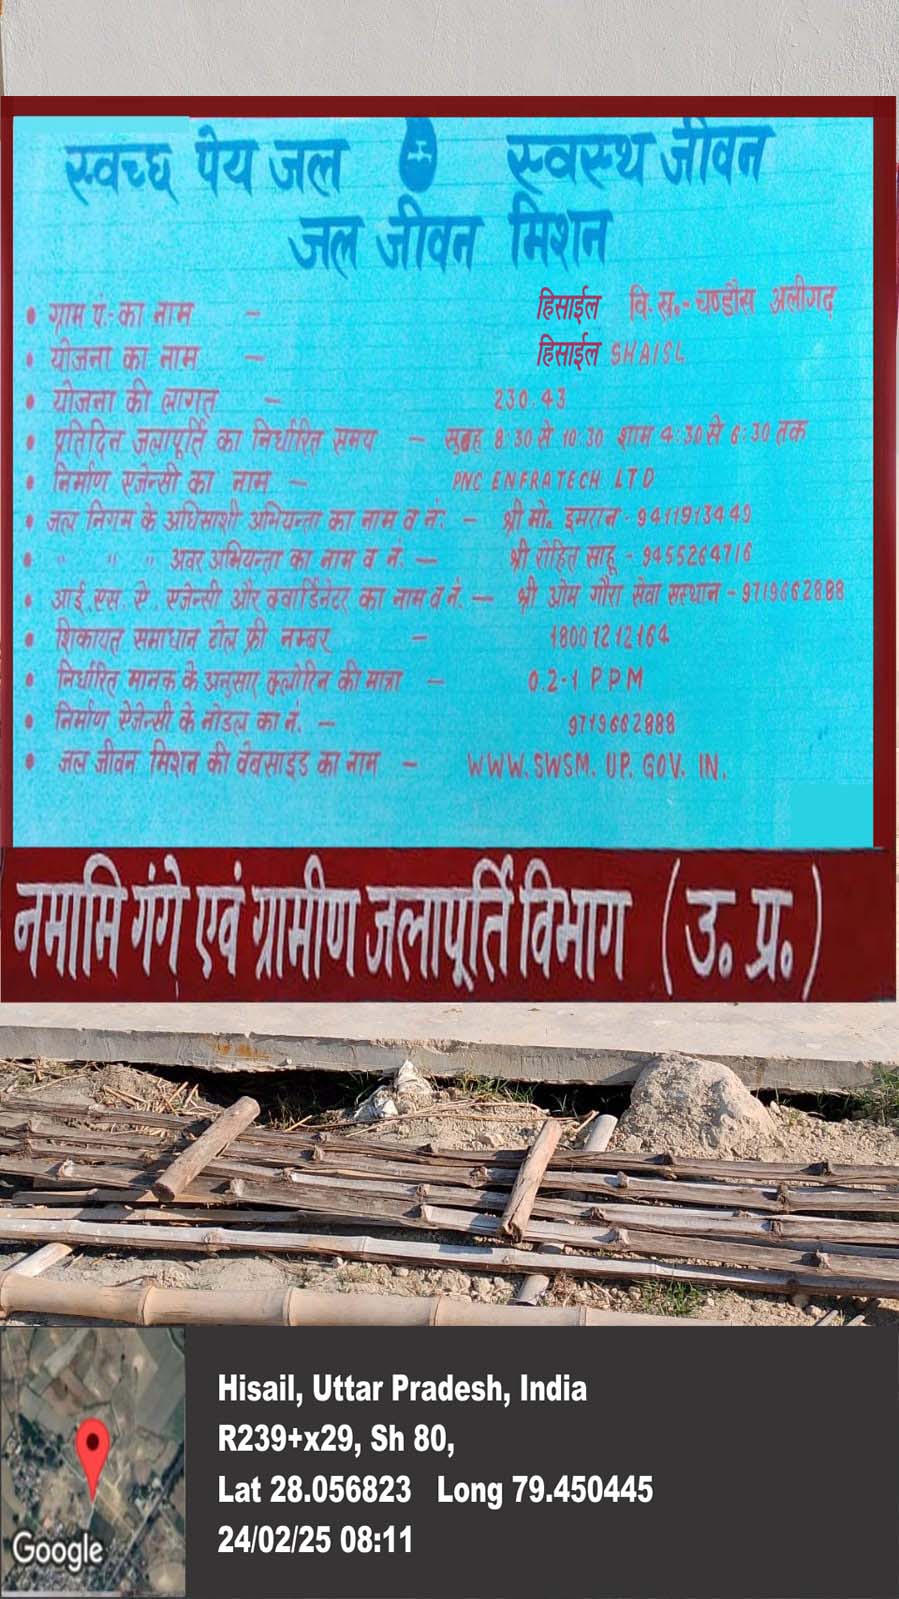 स्वच्छ पेय जल स्वस्थ जीवन
जल जीवन मिशन
• ग्राम पं:-का नाम - हिसाईल वि. ख.- चण्डौस अलीगढ़
• योजना का नाम - हिसाईल SHAISL
• योजना की लागत - 230.43
• प्रतिदिन जलापूर्ति का निर्धारित समय - सुबह 8:30 से 10:30 शाम 4:30 से 6:30 तक
• निर्माण एजेन्सी का नाम - PNC ENFRATECH LTD
• जल निगम के अधिसाशी अभियन्ता का नाम व नं: - श्री मो. इमरान - 9411913449
• " " " अवर अभियन्ता का नाम व नं. - श्री रोहित साहू - 9455264716
• आई. एस. ऐ. एजेन्सी और क्वार्डिनेटर का नाम व नं. - श्री ओम गौरा सेवा सस्थान - 9719662888
• शिकायत समाधान टोल फ्री नम्बर - 18001212164
• निर्धारित मानक के अनुसार क्लोरिन की मात्रा - 0.2-1 PPM
• निर्माण ऐजेन्सी के नोडल का नं. - 9719662888
• जल जीवन मिशन की वेबसाइड का नाम - WWW.SWSM.UP.GOV.IN.
नमामि गंगे एवं ग्रामीण जलापूर्ति विभाग (उ. प्र.)
Hisail, Uttar Pradesh, India
R239+x29, Sh 80,
Lat 28.056823 Long 79.450445
24/02/25 08:11
Google